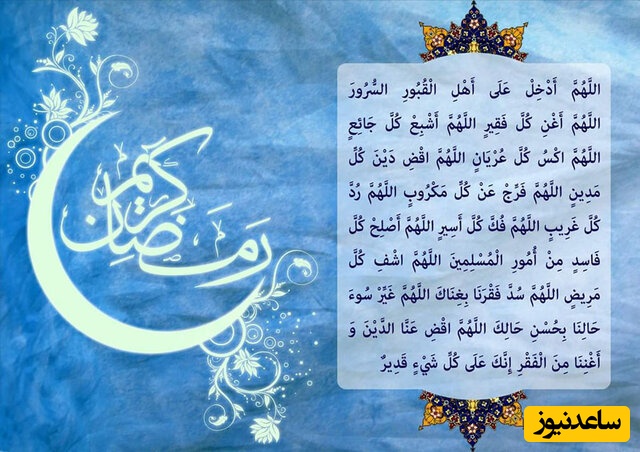 رمضان كريم
اللَّهُمَّ أَدْخِلْ عَلَى أَهْلِ الْقُبُورِ السُّرُورَ
اللَّهُمَّ أَغْنِ كُلَّ فَقِيرٍ اللَّهُمَّ أَشْبِعْ كُلَّ جَائِعٍ
اللَّهُمَّ اكْسُ كُلَّ عُرْيَانٍ اللَّهُمَّ اقْضِ دَيْنَ كُلِّ
مَدِينٍ اللَّهُمَّ فَرِّجْ عَنْ كُلِّ مَكْرُوبٍ اللَّهُمَّ رُدَّ
كُلَّ غَرِيبٍ اللَّهُمَّ فُكَّ كُلَّ أَسِيرٍ اللَّهُمَّ أَصْلِحْ كُلَّ
فَاسِدٍ مِنْ أُمُورِ الْمُسْلِمِينَ اللَّهُمَّ اشْفِ كُلَّ
مَرِيضٍ اللَّهُمَّ سُدَّ فَقْرَنَا بِغِنَاكَ اللَّهُمَّ غَيِّرْ سُوءَ
حَالِنَا بِحُسْنِ حَالِكَ اللَّهُمَّ اقْضِ عَنَّا الدَّيْنَ وَ
أَغْنِنَا مِنَ الْفَقْرِ إِنَّكَ عَلَى كُلِّ شَيْءٍ قَدِيرٌ
ساعدنیوز